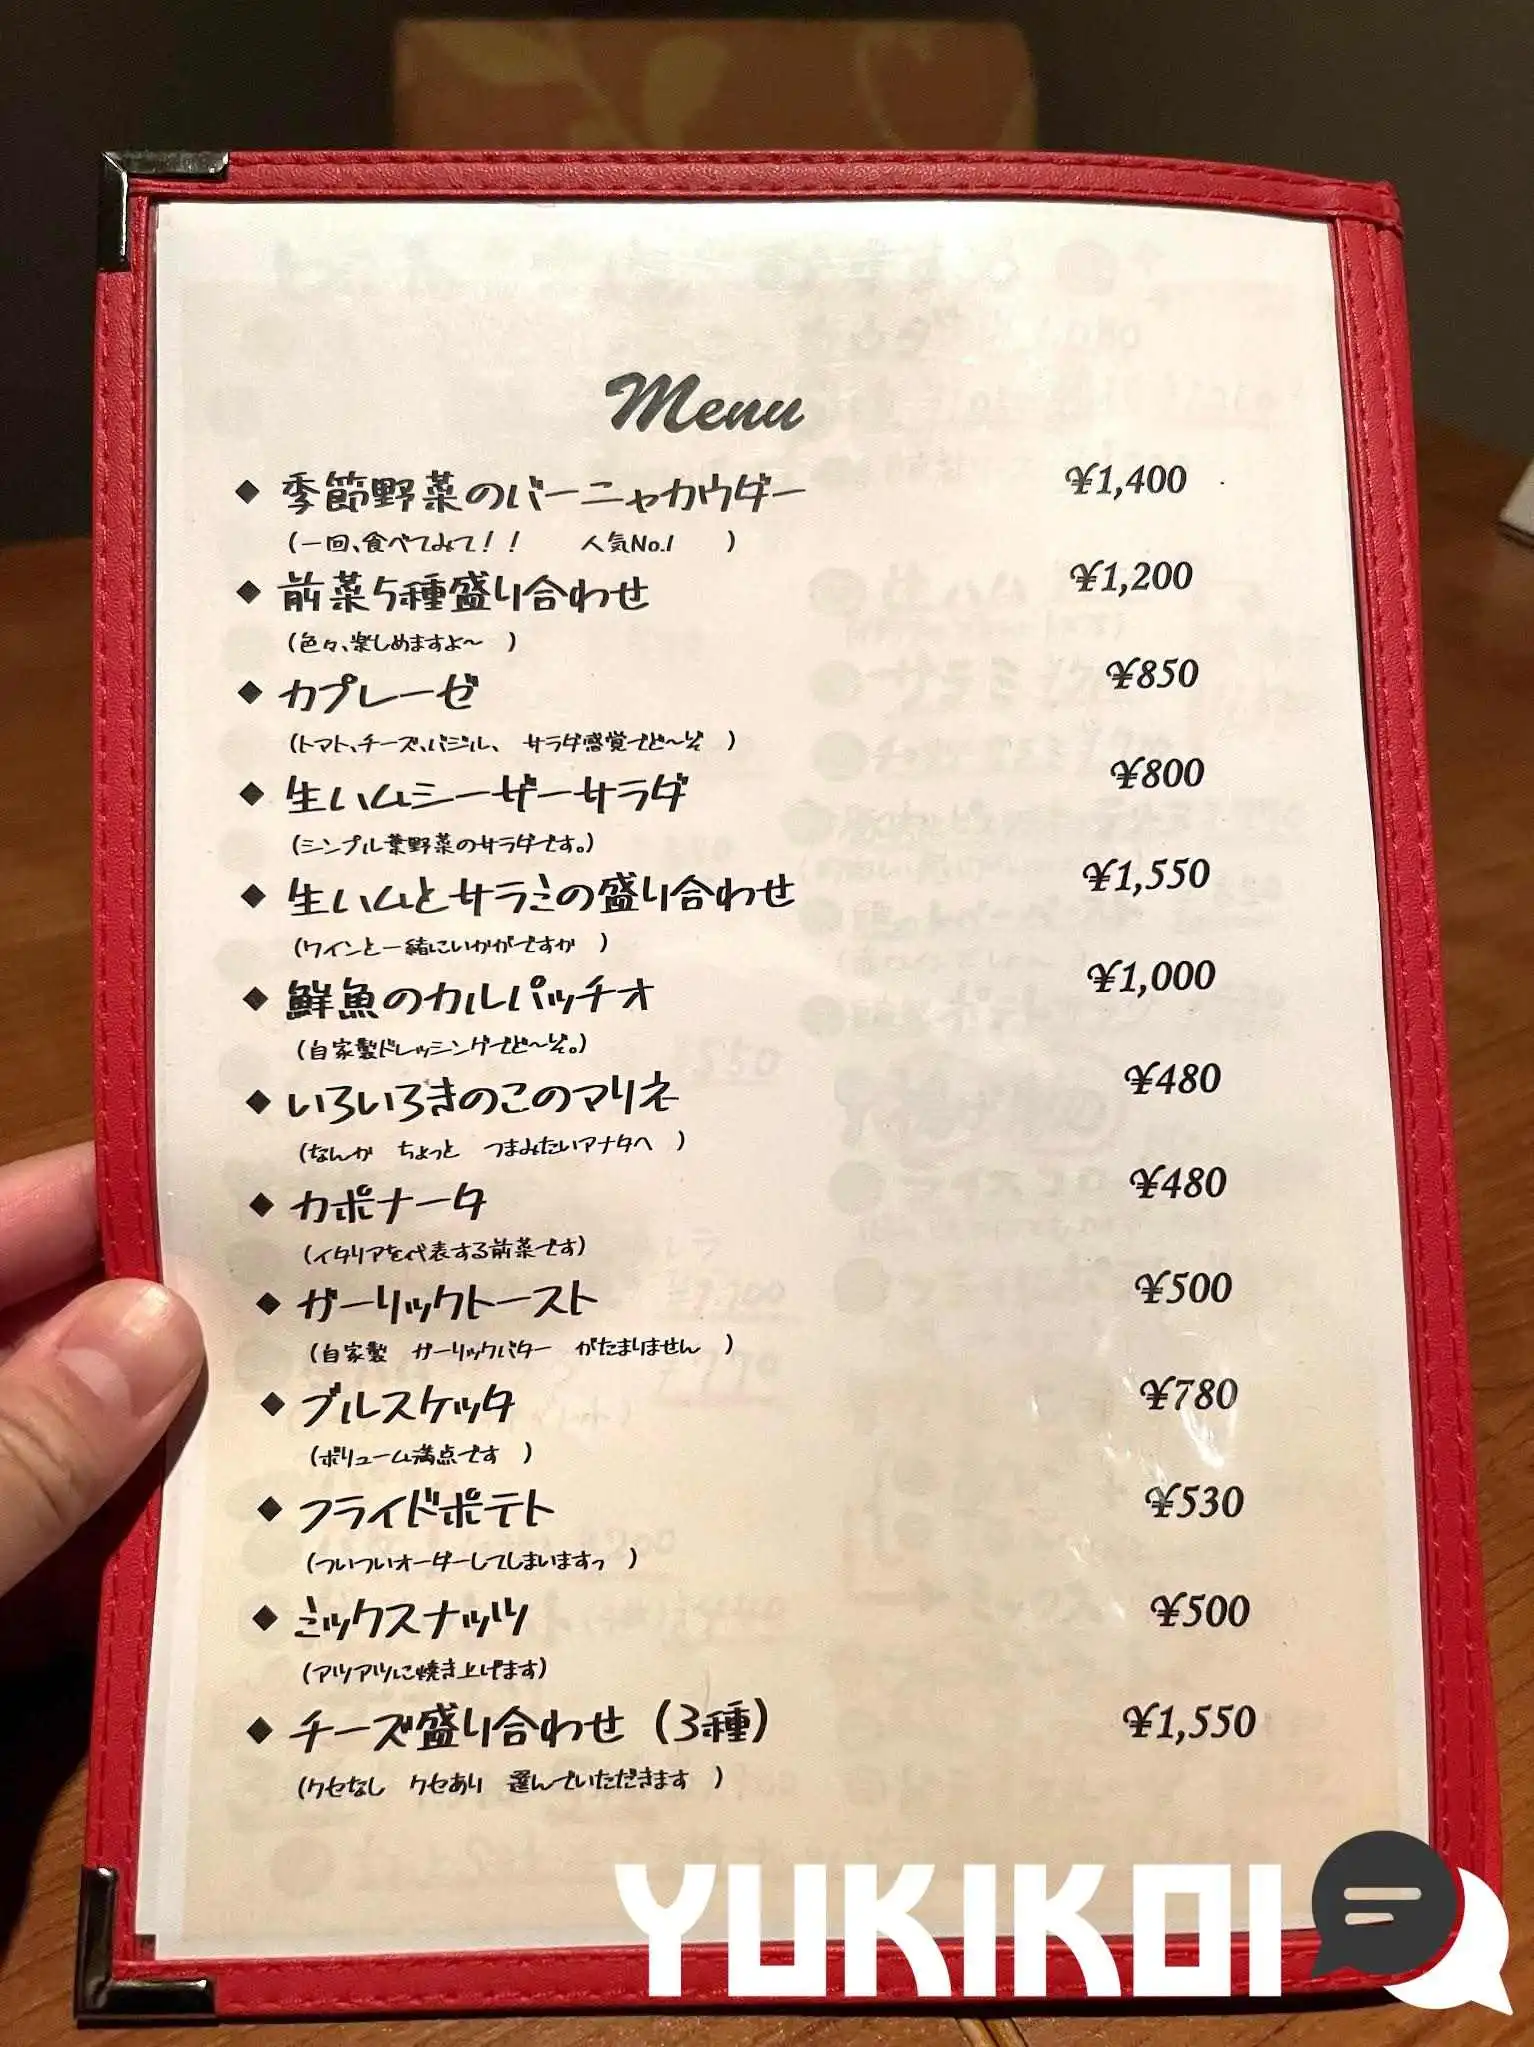 Menu
◆ 季節野菜のバーニャカウダー ¥1,400
(一回、食べてみて！！ 人気No.1 )
◆ 前菜5種盛り合わせ ¥1,200
(色々、楽しめますよ～ )
◆ カプレーゼ ¥850
(トマト、チーズ、バジル、 サラダ感覚でど～ぞ )
◆ 生ハムシーザーサラダ ¥800
(シンプル葉野菜のサラダです。)
◆ 生ハムとサラミの盛り合わせ ¥1,550
(ワインと一緒にいかがですか )
◆ 鮮魚のカルパッチオ ¥1,000
(自家製ドレッシングでど～ぞ。)
◆ いろいろきのこのマリネ ¥480
(なんか ちょっと つまみたいアナタへ )
◆ カポナータ ¥480
(イタリアを代表する前菜です)
◆ ガーリックトースト ¥500
(自家製 ガーリックバター がたまりません )
◆ ブルスケッタ ¥780
(ボリューム満点です )
◆ フライドポテト ¥530
(ついついオーダーしてしまいますっ )
◆ ミックスナッツ ¥500
(アツアツに焼き上げます)
◆ チーズ盛り合わせ（3種） ¥1,550
(クセなし クセあり 選んでいただきます )
YUKIKOI